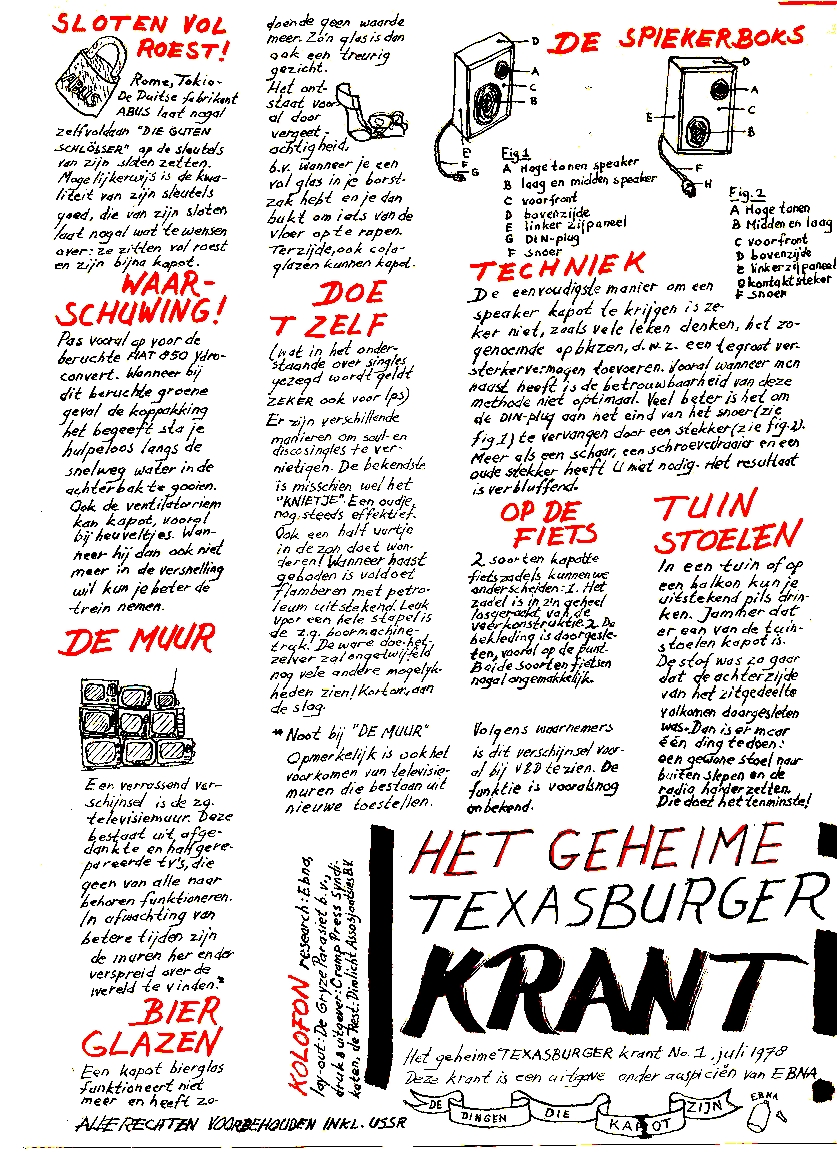 SLOTEN VOL
ROEST!
ABUS
Rome, Tokio-
De Duitse fabrikant
ABUS laat nogal
zelfvoldaan "DIE GUTEN
SCHLÖSSER" op de sleutels
van zijn sloten zetten.
Mogelijkerwijs is de kwa-
liteit van zijn sleutels
goed, die van zijn sloten
laat nogal wat te wensen
over: ze zitten vol roest
en zijn bijna kapot.
WAAR-
SCHUWING!
Pas vooral op voor de
beruchte FIAT 850 Ydro-
convert. Wanneer bij
dit beruchte groene
geval de koppakking
het begeeft sta je
hulpeloos langs de
snelweg water in de
achterbak te gooien.
Ook de ventilatorriem
kan kapot, vooral
bij heuveltjes. Wan-
neer hij dan ook niet
meer in de versnelling
wil kun je beter de
trein nemen.
DE MUUR
Een verrassend ver-
schijnsel is de zg.
televisiemuur. Deze
bestaat uit afge-
dankte en half gere-
pareerde tv's, die
geen van alle naar
behoren funktioneren.
In afwachting van
betere tijden zijn
de muren her en der
verspreid over de
wereld te vinden.*
BIER
GLAZEN
Een kapot bierglas
funktioneert niet
meer en heeft zo-
doende geen waarde
meer. Zo'n glas is dan
ook een treurig
gezicht.
Het ont-
staat voor
al door
vergeet-
achtigheid,
b.v. wanneer je een
vol glas in je borst-
zak hebt en je dan
bukt om iets van de
vloer op te rapen.
Terzijde, ook cola-
glazen kunnen kapot.
DOE
T ZELF
(wat in het onder-
staande over singles
gezegd wordt geldt
ZEKER ook voor lps)
Er zijn verschillende
manieren om soul- en
discosingles te ver-
nietigen. De bekendste
is misschien wel het
"KNIETJE". Een oudje,
nog steeds effektief.
Ook een half uurtje
in de zon doet won-
deren! Wanneer haast
geboden is voldoet
flamberen met petro-
leum uitstekend. Leuk
voor een hele stapel is
de z.g. boormachine-
truk. De ware doe-het-
zelver zal ongetwijfeld
nog vele andere mogelijk-
heden zien! Kortom, aan
de slag.
* Noot bij "DE MUUR"
Opmerkelijk is ook het
voorkomen van televisie-
muren die bestaan uit
nieuwe toestellen.
DE SPIEKERBOKS
D
A
C
B
E
F
G
Fig 1
A Hoge tonen speaker
B laag en midden speaker
C voorfront
D bovenzijde
E linker zijpaneel
G DIN-plug
F snoer
D
A
E
C
B
F
H
Fig. 2
A Hoge tonen
B Midden en laag
C voorfront
D bovenzijde
E linker zijpaneel
G kontaktsteker
F snoer
TECHNIEK
De eenvoudigste manier om een
speaker kapot te krijgen is ze-
ker niet, zoals vele leken denken, het zo-
genoemde opblazen, d.w.z. een te groot ver-
sterkervermogen toevoeren. Vooral wanneer men
haast heeft is de betrouwbaarheid van deze
methode niet optimaal. Veel beter is het om
de DIN-plug aan het eind van het snoer (zie
fig. 1) te vervangen door een stekker (zie fig. 2).
Meer als een schaar, een schroevedraaier en een
oude stekker heeft U niet nodig. Het resultaat
is verbluffend.
OP DE
FIETS
2 soorten kapotte
fietszadels kunnen we
onderscheiden: 1. Het
zadel is in z'n geheel
losgeraakt van de
veerkonstruktie 2. De
bekleding is doorgesle-
ten, vooral op de punt.
Beide soorten fietsen
nogal ongemakkelijk.
Volgens waarnemers
is dit verschijnsel voor-
al bij V&D te zien. De
funktie is vooralsnog
onbekend.
TUIN
STOELEN
In een tuin of op
een balkon kun je
uitstekend pils drin-
ken. Jammer dat
er een van de tuin-
stoelen kapot is.
De stof was zo gaar
dat de achterzijde
van het zitgedeelte
volkomen doorgesleten
was. Dan is er maar
één ding te doen:
een gewone stoel naar
buiten slepen en de
radio harder zetten.
Die doet het tenminste!
KOLOFON research: Ebna,
lay-out: De Gryze Parasiet b.v.,
druk & uitgever: Cramp Press Syndi-
katen, de Rest: Dimlicht Assosjaatsjes BV.
HET GEHEIME
TEXASBURGER
KRANT
Het geheime TEXASBURGER krant No. 1, juli 1978
Deze krant is een uitgave onder auspiciën van EBNA
DE DINGEN DIE KAPOT ZIJN
EBNA
1
ALLE RECHTEN VOORBEHOUDEN INKL. USSR